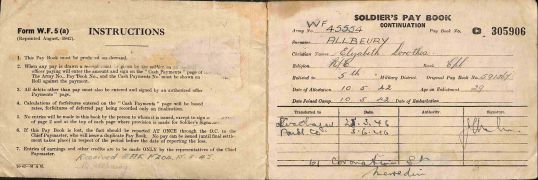 Form W.F. 5 (a)
(Reprinted August, 1942).
INSTRUCTIONS
1. This Pay Book must be produced on demand.
2. When any pay is drawn a
officer paying will enter the amount and sign on the "Cash Payments" page of
The Army No., Pay Book No., and the Cash Payments No. must be shown on the
Roll against the payment.
3. All debits other than pay must also be entered and signed by an authorised
Payments" page.
4. Calculations of forfeitures entered on the "Cash Payments" page will be based
rates, forfeitures of deferred pay being recorded only on finalisation.
5. No entries will be made in this book by the person to whom it is issued, except to sign
of page 2 and at the top of each page where provision is made for Soldier's
6. If this Pay Book is lost, the fact should be reported AT ONCE through the O.C. to the
Chief Paymaster, who will issue a duplicate Pay Book. No pay can be issued until
taken place (in respect of the period before the date of reporting the loss).
7. Entries of earning and other credits are to be made ONLY by the representatives of the Chief
Paymaster.
SOLDIER'S PAY BOOK
CONTINUATION
Army No. WF 45554
Pay Book No. C. 305906
Surname ALLBEURY
Christian Names Elizabeth Dorothea
Religion R/C
Rank Cpl
Enlisted in 5th Military District. Original Pay Book No.
Date of Attestation 10 5 42 Age on Enlistment 29
Date Joined Camp 10 5 42 Date of Embarkation
Transferred to Date Authority Signature
5.6.46
61 Coronation St